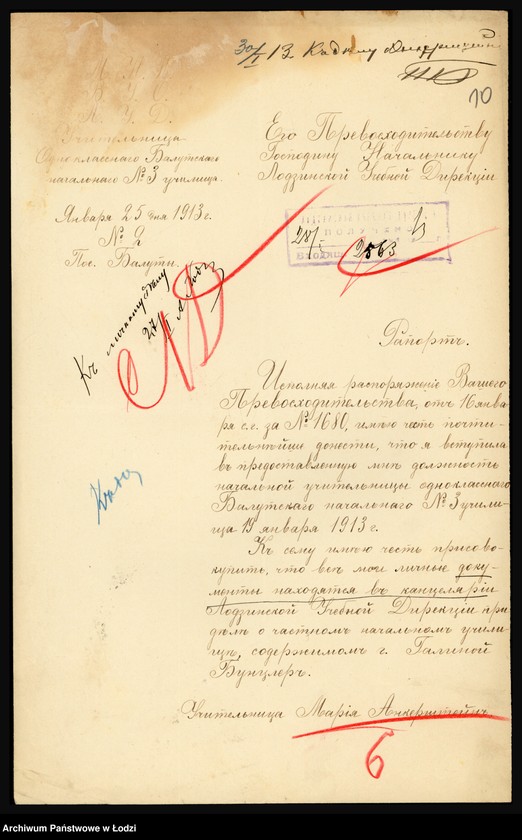 30/I 13
10
М. Н. П.
Л. У. Д.
Учительница
Одноклассного Балутскаго
начальнаго № 3 училища.
Января 25 дня 1913 г.
№ 2
Пос. Балуты.
Его Превосходительству
Господину Начальнику
Лодзинской Учебной Дирекціи
ПОЛУЧЕН
28/I
2563
Къ личному дѣлу
27/II
Рапортъ.
Исполняя распоряженіе Вашего
Превосходительства, отъ 16 янва-
ря с.г. за № 1680, имѣю честь почти-
тельнѣйше донести, что я вступила
въ предоставленную мнѣ должность
начальной учительницы одноклассного
Балутскаго начальнаго № 3 учили-
ща 19 января 1913 г.
Къ сему имѣю честь присово-
купить, что всѣ мои личные доку-
менты находятся въ канцеляріи
Лодзинской Учебной Дирекціи при
дѣлѣ о частномъ начальномъ учили-
щѣ, содержимомъ г. Галиной
Бунцлеръ.
Учительница Марія Анкерштейнъ
6
Archiwum Państwowe w Łodzi